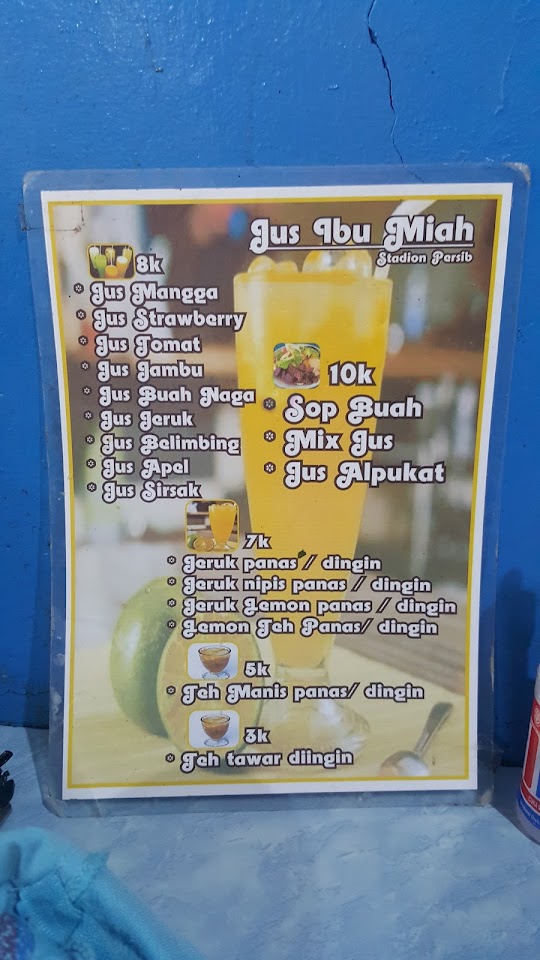 Jus Ibu Miah
Stadion Persib
8k
Jus Mangga
Jus Strawberry
Jus Tomat
Jus Jambu
Jus Buah Naga
Jus Jeruk
Jus Belimbing
Jus Apel
Jus Sirsak
10k
Sop Buah
Mix Jus
Jus Alpukat
7k
Jeruk panas / dingin
Jeruk nipis panas / dingin
Jeruk Lemon panas / dingin
Lemon Teh Panas/ dingin
5k
Teh Manis panas/ dingin
3k
Teh tawar diingin